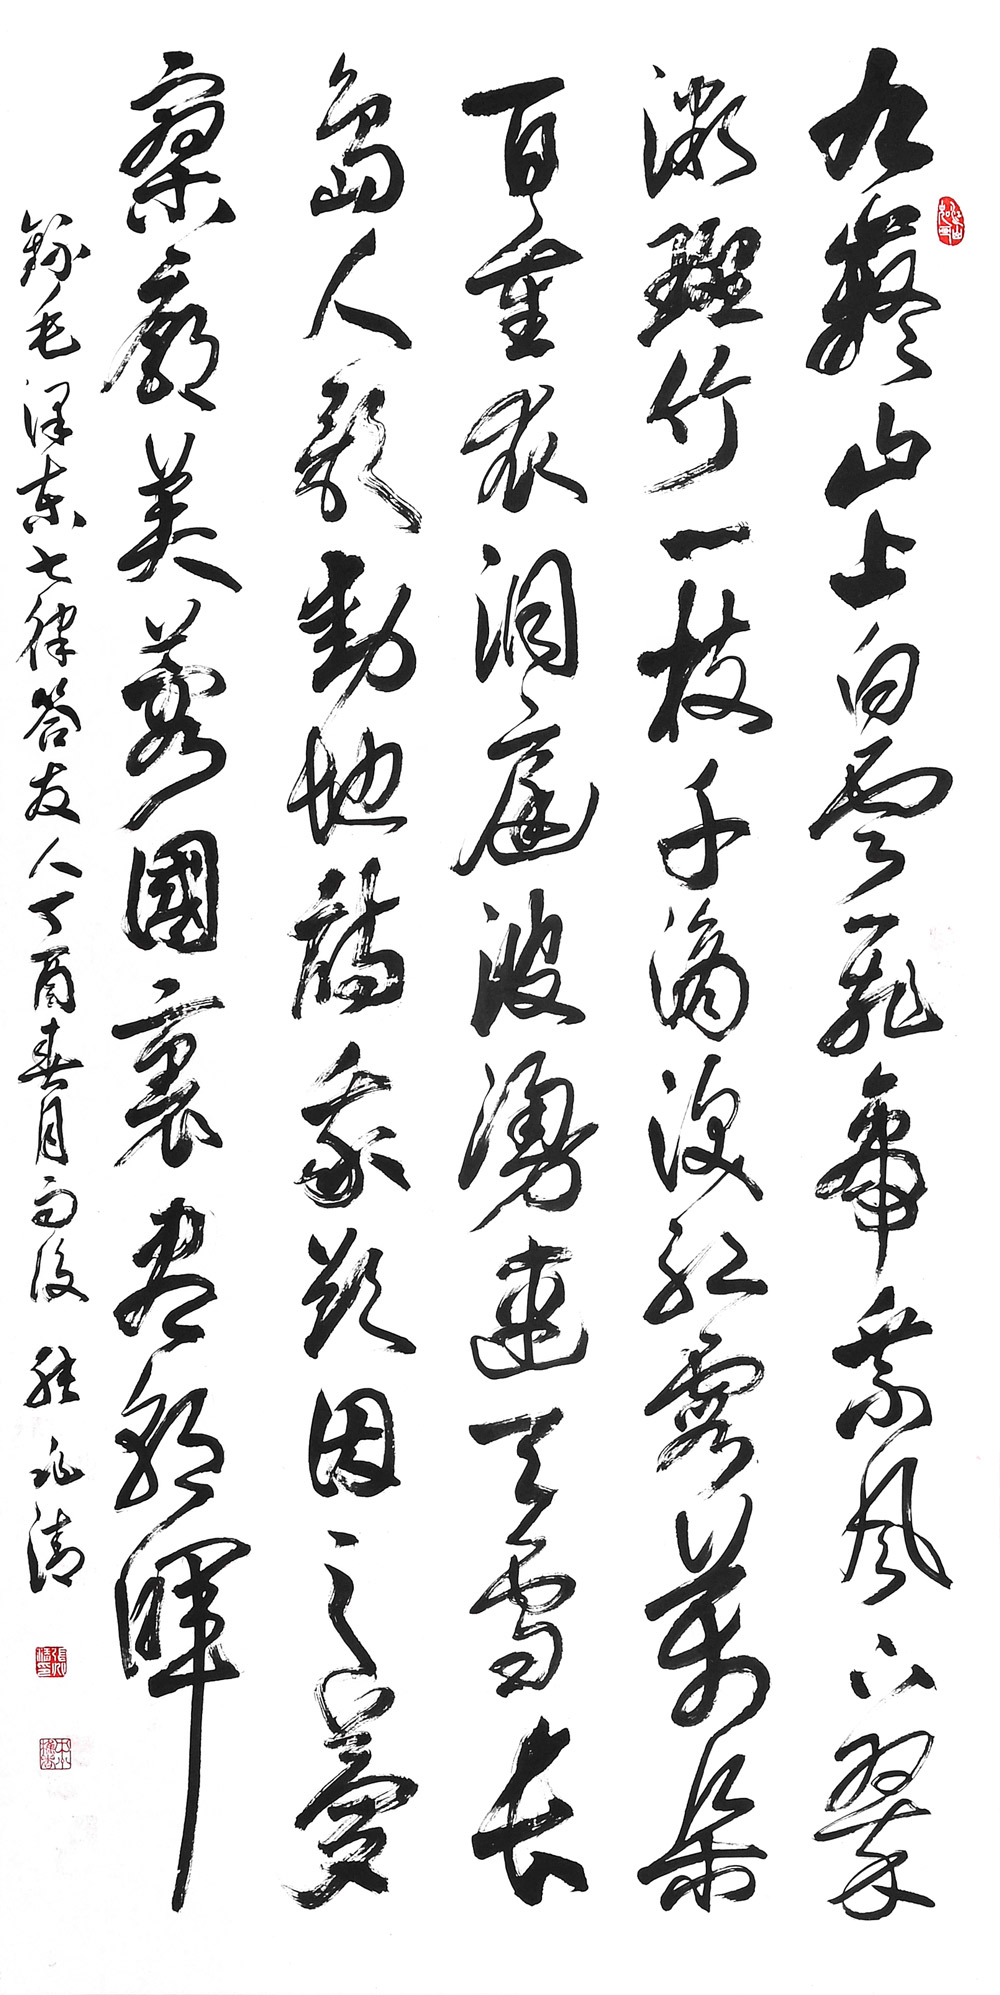 九嶷山上白雲飛帝乘風下翠
微斑竹一枝千滴淚紅霞萬朵
百重衣洞庭波湧連天雪長
島人歌動地詩我欲因之夢
寥廓芙蓉國裏盡朝暉
錄毛澤東七律答友人丁酉春月雨後 張兆清